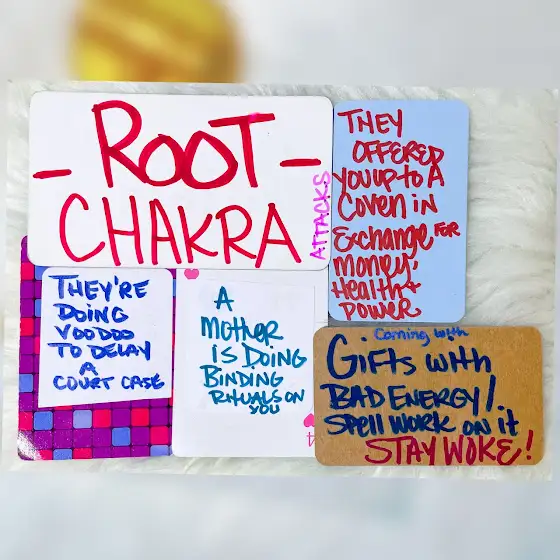 - ROOT -
CHAKRA
ATTACKS
THEY
OFFERED
YOU UP TO A
COVEN IN
Exchange FOR
money,
Health +
POWER
THEY'RE
DOING
VOODOO
TO DELAY
A
COURT CASE
A
MOTHER
IS DOING
BINDING
RITUALS ON
YOU
4
Coming with
GIFTS WITH
BAD ENERGY/
SPELL WORK ON it
STAY WOKE!